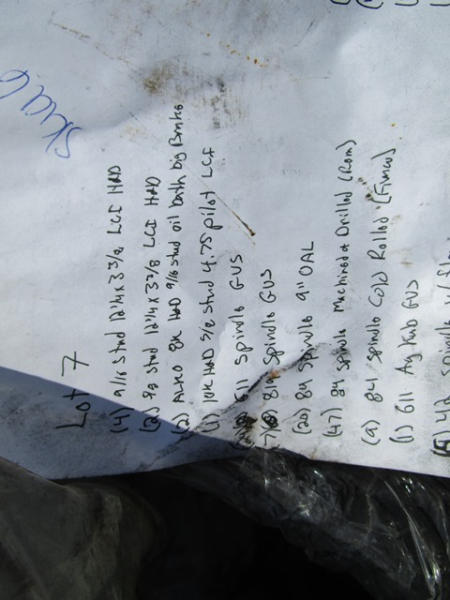 Lot 7
(4) 9/16 Stud 12"1/4 x 3 3/8 LCI H&D
(2) 5/8 Stud 12"1/4 x 3 3/8 LCI H&D
(2) ALKO 8K H&D 9/16 Stud oil bath big Brake
(1) 10K H&D 5/8 Stud 4.75 pilot LCI
611 Spindle GUS
819 Spindle GUS
(20) 84 Spindle 9" OAL
(47) 84 Spindle Machined & Drilled (Rom)
(9) 84 Spindle Cold Rolled (Fimco)
(1) 611 Ag Hub GUS
(5) 42 Spindle w/